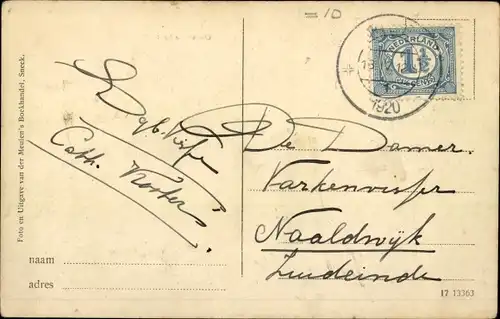 =10
NEDERLAND
1½
CENT
1920
Foto en Uitgave van der Meulen's Boekhandel, Sneek.
Cath. Kosters
De Damer
Varkenvisser
Naaldwijk
Zuideinde
naam
adres
17 13363